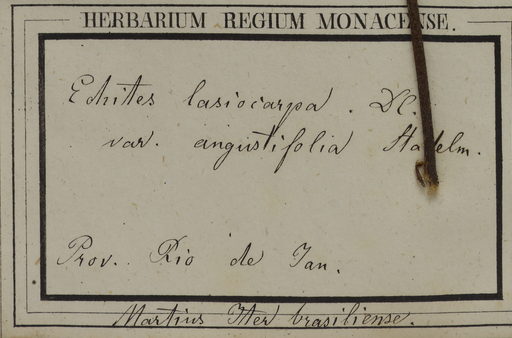 HERBARIUM REGIUM MONACENSE.
Echites lasiocarpa. DC.
var. angustifolia Stadelm.
Prov. Rio de Jan.
Martius Iter brasiliense.